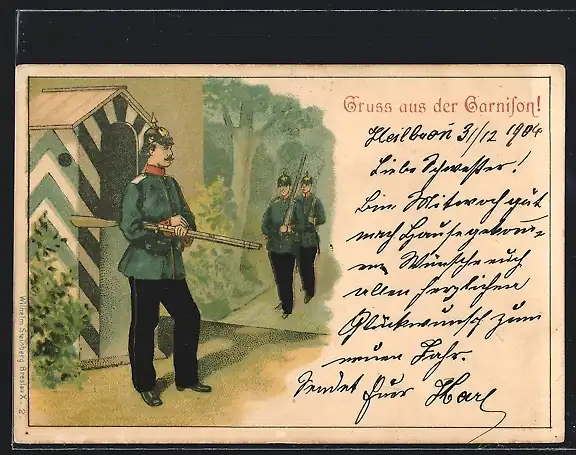 Gruss aus der Garnison!
Heilbron 31/12 1904
Liebe Schwester!
Bin Mitwoch gut
nach Hause gekom-
en Wünsche euch
allen herzlichen
Glückwunsch zum
neuen Jahr.
Sendet Euer Karl
Wilhelm Steinberg, Breslau X. 2